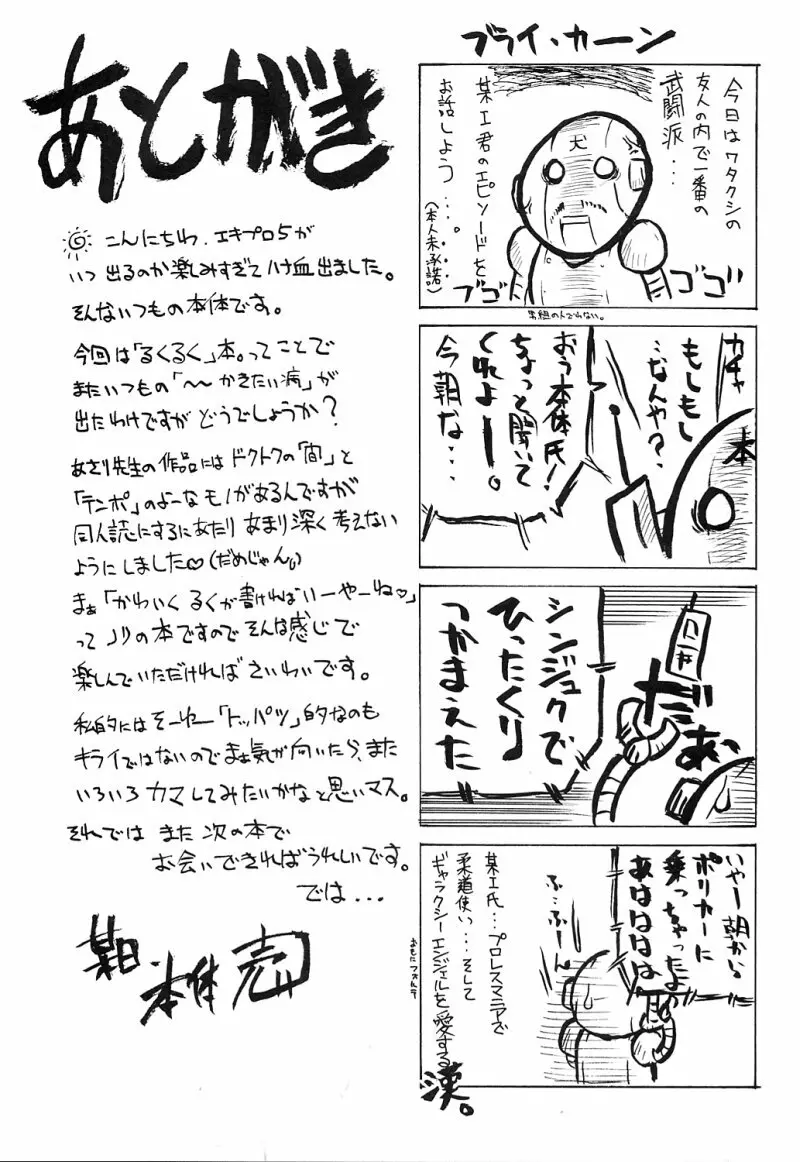 あとがき
こんにちわ、エキプロ5が
いつ出るのか楽しみすぎてハナ血出ました。
そんないつもの本体です。
今回は「るくるく」本。ってことで
またいつもの「〜〜かきたい病」が
出たわけですがどうでしょうか?
あさり先生の作品にはドクトクの「間」と
「テンポ」のよーなモノがあるんですが
同人誌にするにあたりあまり深く考えない
ようにしました♡(だめじゃん。)
まぁ「かわいくるくが書ければいーやーね♡」
ってノリの本ですのでそんな感じで
楽しんでいただければさいわいです。
私的にはそーゆー「トッパツ」的なのも
キライではないのでまぁ気が向いたら、また
いろいろカマしてみたいかなと思いマス。
それではまた次の本で
お会いできればうれしいです。
では...
本体
ブライ・カーン
今日はワタクシの
友人の内で一番の
武闘派...
某エ君のエピソードを
お話しよう...。
(本人未承諾)
犬
ゴゴ
ブゴ
男組の人でわない。
カチャ
もしもし
...なんや?
本
おう本体氏!
ちょっと聞いて
くれよー。
今朝な...
シンジュクで
ひったくり
つかまえた
だぁ
いやー朝から
ポリカーに
乗っちゃったよ
あはははは
ふ...ふーん
某エ氏...プロレスマニアで
柔道使い...そして
ギャラクシーエンジェルを愛する
漢。
おもにフォルテ